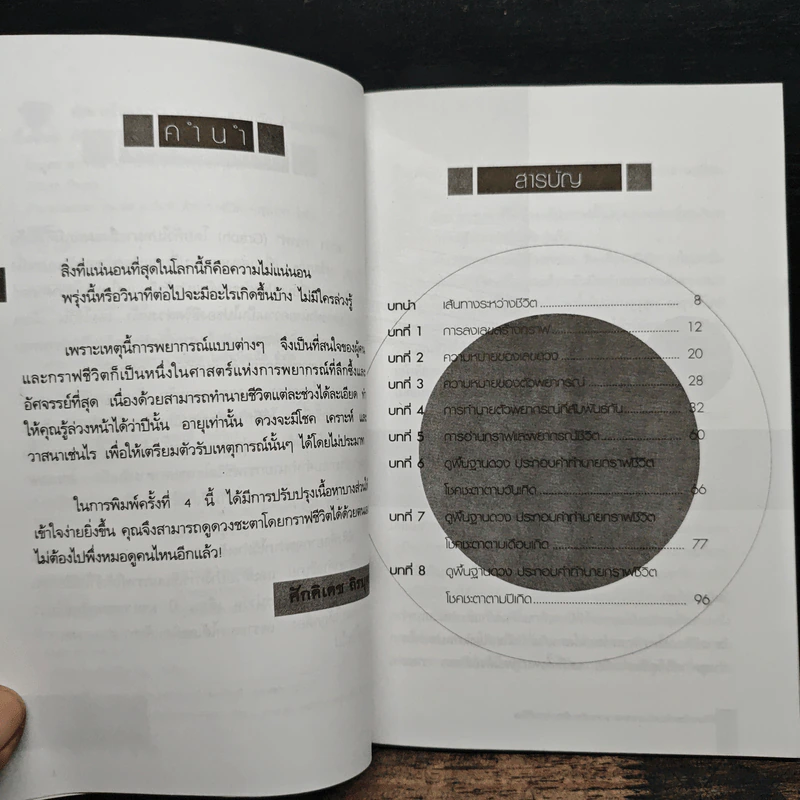 คำนำ
สิ่งที่แน่นอนที่สุดในโลกนี้ก็คือความไม่แน่นอน
พรุ่งนี้หรือวินาทีต่อไปจะมีอะไรเกิดขึ้นบ้าง ไม่มีใครล่วงรู้
เพราะเหตุนี้การพยากรณ์แบบต่างๆ จึงเป็นที่สนใจของผู้คน
และกราฟชีวิตก็เป็นหนึ่งในศาสตร์แห่งการพยากรณ์ที่ลึกซึ้งและ
อัศจรรย์ที่สุด เนื่องด้วยสามารถทำนายชีวิตแต่ละช่วงได้ละเอียด
ให้คุณรู้ล่วงหน้าได้ว่าปีนั้น อายุเท่านั้น ดวงจะมีโชค เคราะห์ และ
วาสนาเช่นไร เพื่อให้เตรียมตัวรับเหตุการณ์นั้นๆ ได้โดยไม่ประมาท
ในการพิมพ์ครั้งที่ 4 นี้ ได้มีการปรับปรุงเนื้อหาบางส่วน
เข้าใจง่ายยิ่งขึ้น คุณจึงสามารถดูดวงชะตาโดยกราฟชีวิตได้ด้วย
ไม่ต้องไปพึ่งหมอดูคนไหนอีกแล้ว!
ศักดิเดช
สารบัญ
บทนำ เส้นทางระหว่างชีวิต 8
บทที่ 1 การลงเลขสร้างกราฟ 12
บทที่ 2 ความหมายของเลขดวง 20
บทที่ 3 ความหมายของตัวพยากรณ์ 28
บทที่ 4 การทำนายตัวพยากรณ์ที่สัมพันธ์กัน 32
บทที่ 5 การอ่านกราฟและพยากรณ์ชีวิต 60
บทที่ 6 ดูพื้นฐานดวง ประกอบคำทำนายกราฟชีวิต
โชคชะตาตามวันเกิด 66
บทที่ 7 ดูพื้นฐานดวง ประกอบคำทำนายกราฟชีวิต
โชคชะตาตามเดือนเกิด 77
บทที่ 8 ดูพื้นฐานดวง ประกอบคำทำนายกราฟชีวิต
โชคชะตาตามปีเกิด 96